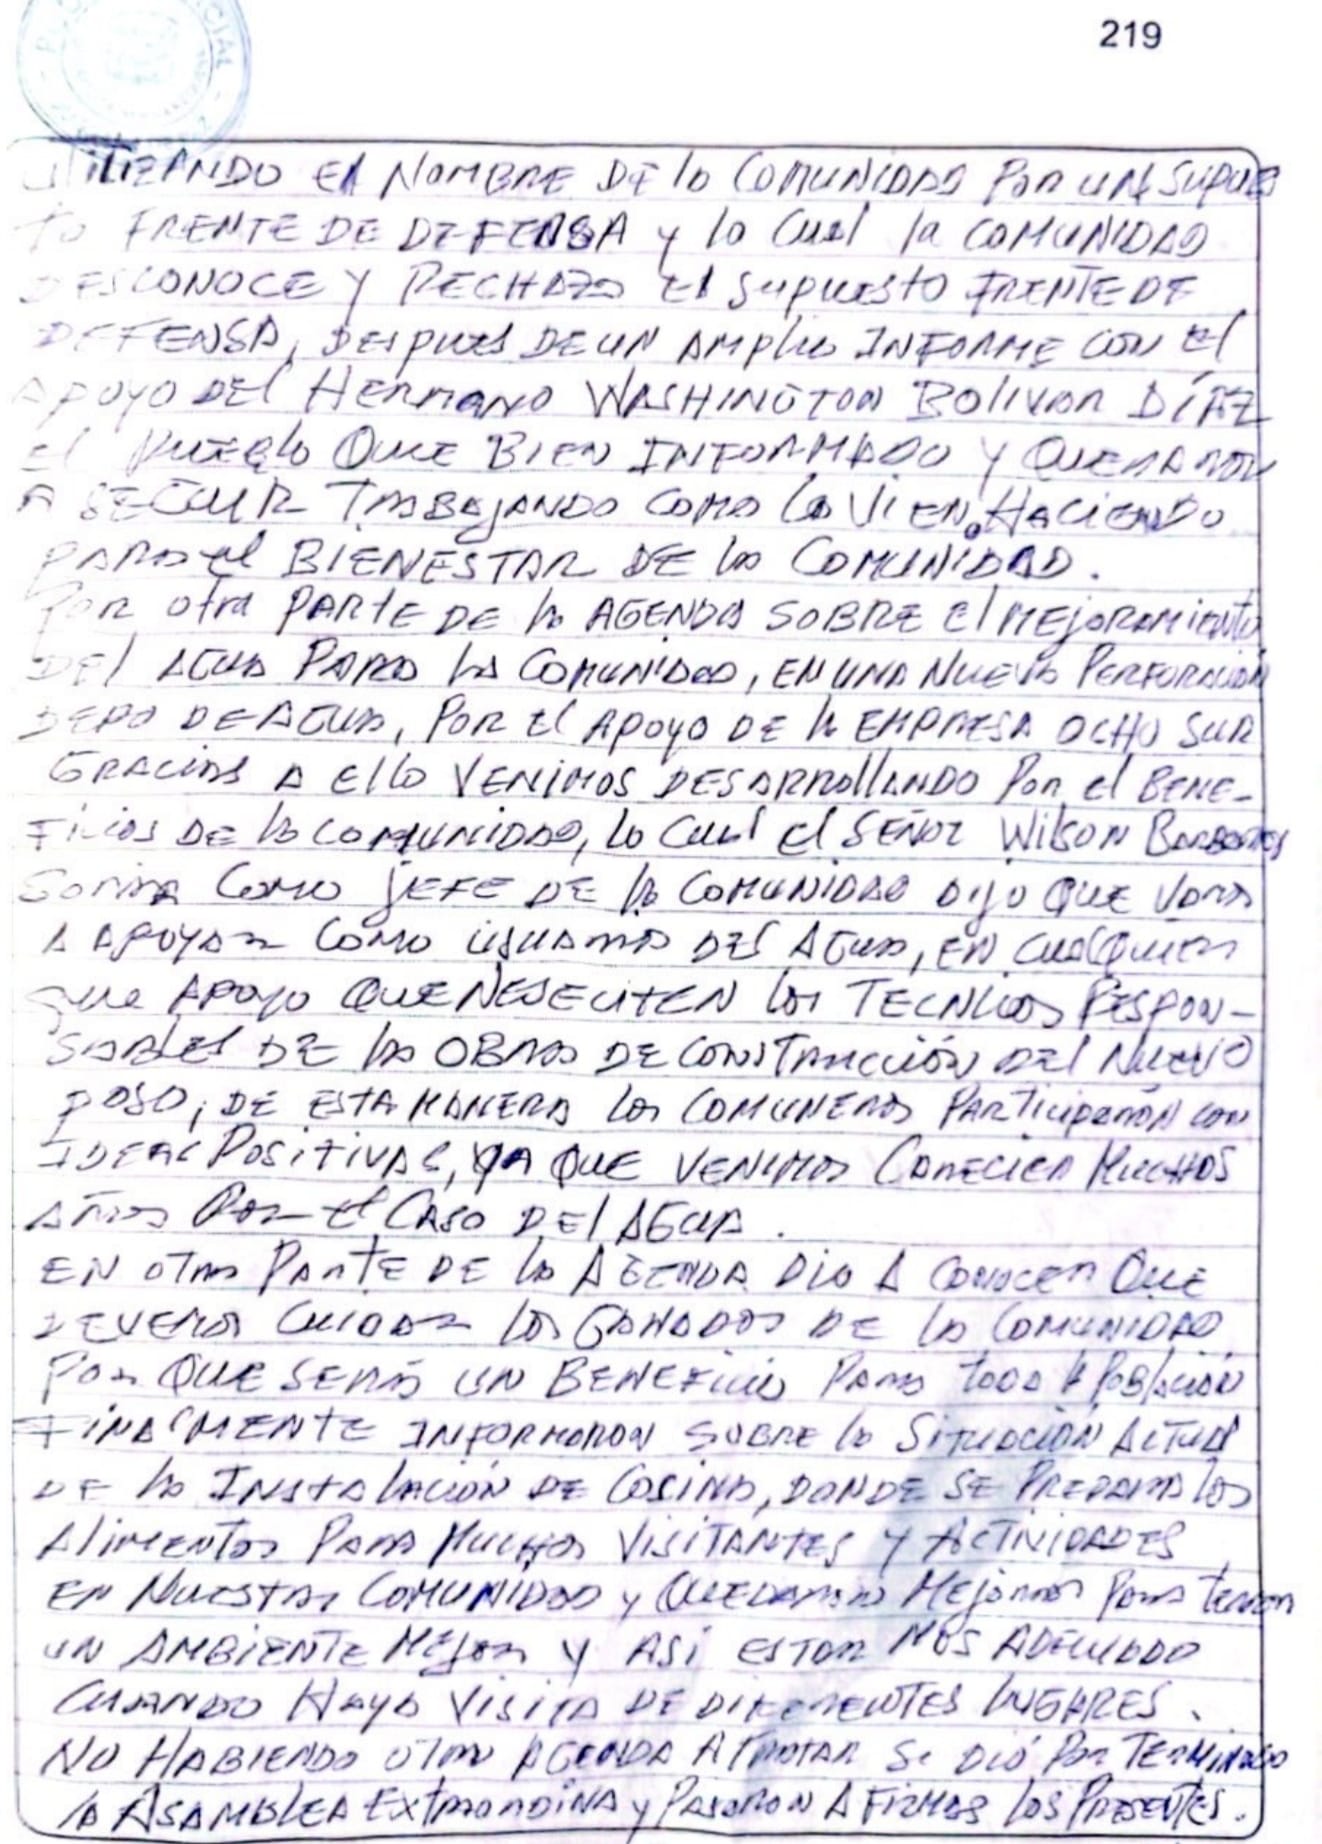 219
UTILIZANDO El NOMBRE DE la COMUNIDAD POR UN SUPUES
to FRENTE DE DEFENSA y lo Cual la COMUNIDAD
DESCONOCE Y RECHAZA El supuesto FRENTE DE
DEFENSA, DESPUES DE UN AMPlio INFORME CON El
APOYO DEl HERMANO WASHINGTON BOLIVAR DÍAZ
El PUEBlo QUE BIEN INFORMADO Y QUEDARON
A SEGUIR TRABAJANDO COMO lo VIEN HACIENDO
PARA el BIENESTAR DE la COMUNIDAD.
Por otra PARTE DE la AGENDA SOBRE El MEJORAMIENTO
DEl AGUA PARA la COMUNIDAD, EN UNA NUEVA PERFORACIÓN
DE AGUA, POR El APOYO DE la EMPRESA OCHO SUR
GRACIAS A Ello VENIMOS DESARROllANDO POR el BENE-
FICIOS DE la COMUNIDAD, lo Cual El SEÑOR WilSON BARBARAN
SORIA COMO JEFE DE la COMUNIDAD DIJO QUE VAMOS
A APOYAR COMO USUARIOS DEl AGUA, EN CUALQUIER
que APOYO QUE NESECITEN los TECNICOS RESPON-
SABLES DE la OBRA DE CONSTRUCCIÓN DEl NUEVO
POSO, DE ESTA MANERA los COMUNEROS PARTICIPARON CON
IDEAS POSITIVAS, YA QUE VENIMOS CARECIER MUCHOS
AÑOS POR El CASO DEl AGUA.
EN OTRA PARTE DE la AGENDA DIO A CONOCER QUE
DEVEMOS CUIDAR los GANADOS DE la COMUNIDAD
POR QUE SERÁ UN BENEFICIO PARA TODA la POBlACIÓN
FINALMENTE INFORMARON SOBRE la SITUACIÓN ACTUAL
DE la INSTALACIÓN DE COSINA, DONDE SE PREPARA los
AlIMENTOS PARA MUCHOS VISITANTES Y ACTIVIDADES
EN NUESTRA COMUNIDAD y QUEDARON MEJORAR PARA tener
UN AMBIENTE MEJOR Y ASÍ ESTAR MAS ADECUADO
CUANDO HAYA VISITA DE DIFERENTES LUGARES.
NO HABIENDO OTRA AGENDA A TRATAR SE DIÓ POR TERMINADO
la ASAMBLEA y PASARON A FIRMAR los PRESENTES.